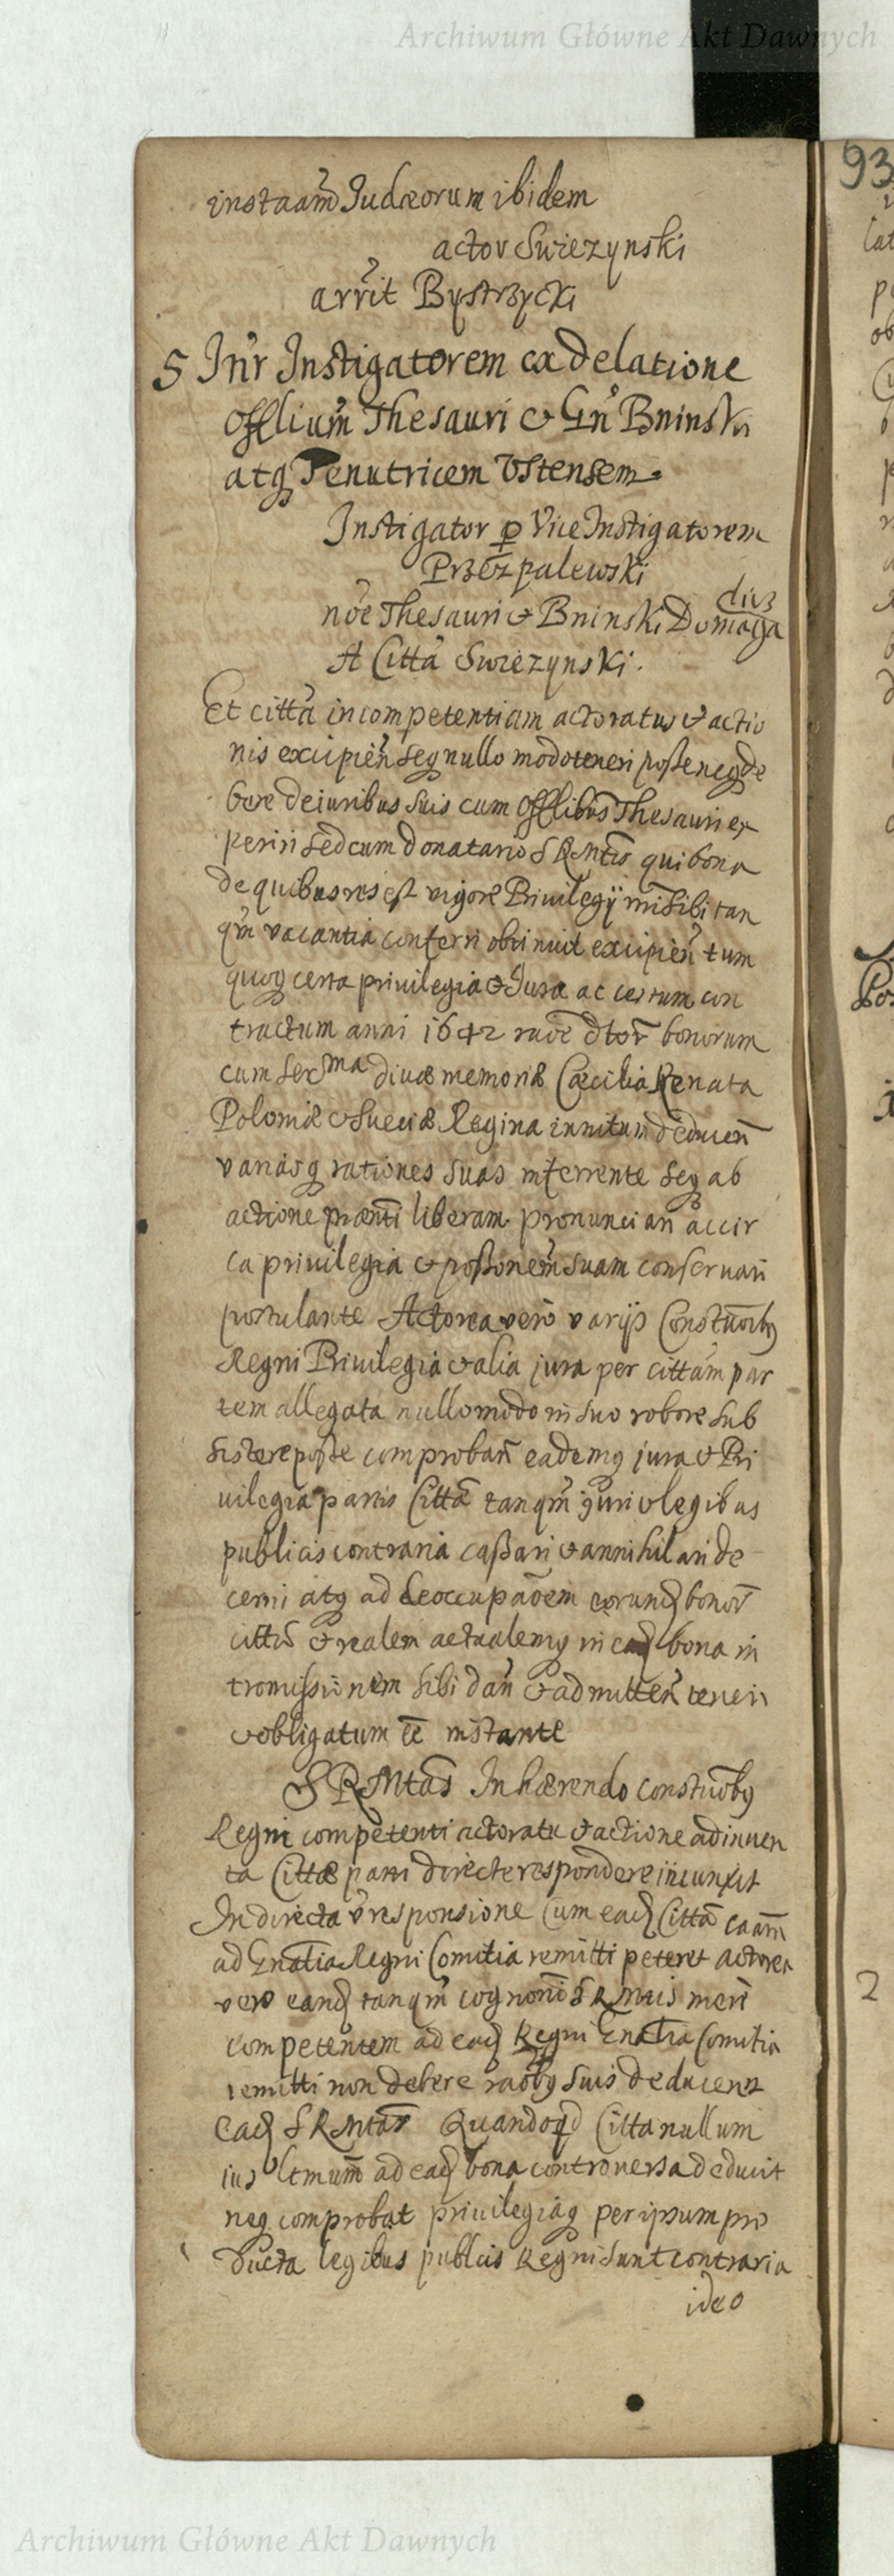 Archiwum Główne Akt Dawnych
93
instaam̃ Judæorum ibidem
actor Swiezynski
arrit Bystrzycki
5 Inr Instigatorem ex delatione
Offlium Thesauri & Gn Bninski
atq Tenutricem Ustensem
Instigator p Vice Instigatorem
Przezpalewski
noe Thesauri & Bninski Domaga
A Citta Swiezynski.
Et citta incompetentiam actoratus & actio
nis excipien seq nullo modo teneri posse neq de
bere de iuribus suis cum Offlibus Thesauri ex
periri sed cum donatario SRMtis qui bona
de quibus res est vigore Privilegij sibi tan
qm vacantia conferri obtinuit excipien tum
quoq certa privilegia & Jura ac certum con
tractum anni 1642 rave dtor bonorum
cum Serma divæ memoriæ Cæcilia Renata
Poloniæ & Sueciæ Regina initum deducen
variasq rationes suas inferrente seq ab
actione prænti liberam pronunciari ac cir
ca privilegia & possonem suam conservari
postulante Actorea vero varijs Constuonibq
Regni Privilegia & alia jura per cittam par
tem allegata nullo modo in suo robore sub
sistere posse comproban eademq jura & Pri
vilegia partis Cittæ tanqm juri & legibus
publicis contraria cassari & annihilari de
cerni atq ad deoccupaoem eorund bonor
cittu & realem actualemq in ead bona in
tromissionem sibi dan & admitten teneri
& obligatum ee instante
SRMtas Inhærendo constuobq
Regni competenti actoratu & actione adinven
ta Cittæ parti directe respondere iniunxit
In directa v responsione cum ead Citta caam
ad Gnalia Regni Comitia remitti peteret actorea
vero eand tanqm cognoni SRMtis meri
competentem ad ead Regni Gnalia Comitia
remitti non debere raobq suis deducent
Ead SRMtas Quandoqd Citta nullum
ius ltmum ad ead bona controversa deducit
neq comprobat privilegiaq per ipsum pro
ducta legibus publicis Regni sunt contraria
ideo
2
Archiwum Główne Akt Dawnych